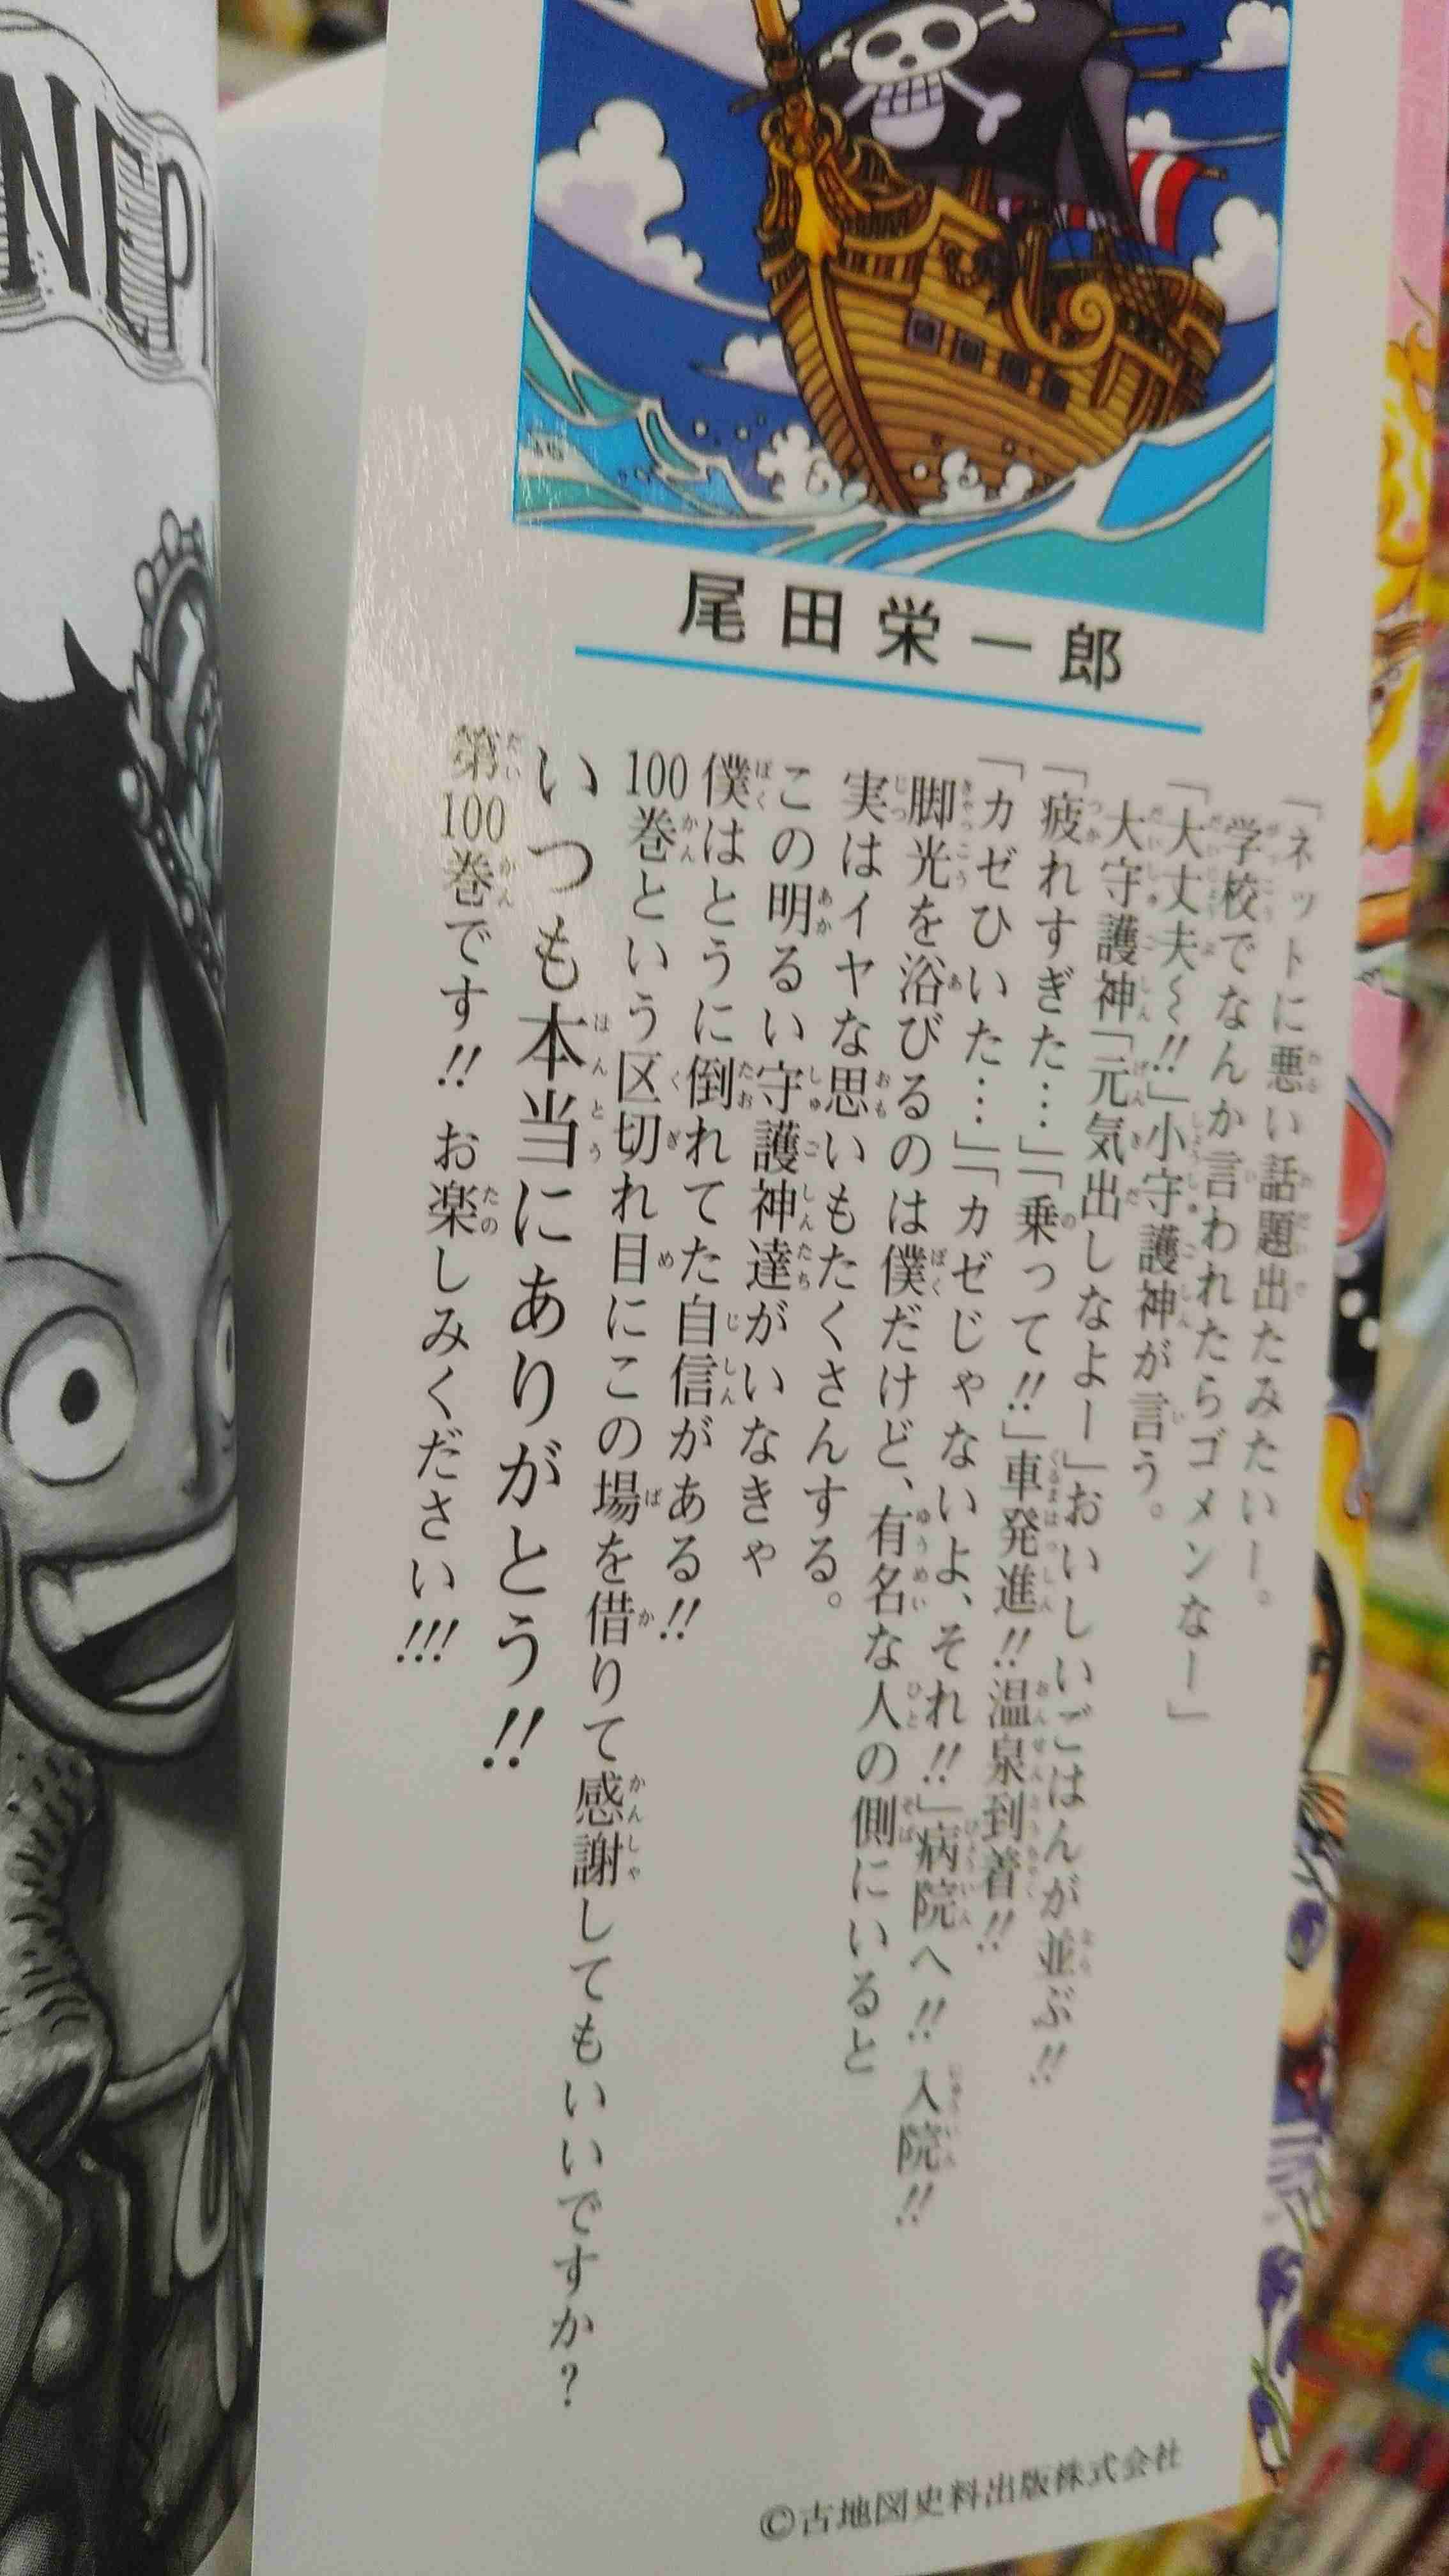 尾田栄一郎
「ネットに悪い話題出たみたいー。
学校でなんか言われたらゴメンなー」
「大丈夫〜!!」小守護神が言う。
大守護神「元気出しなよー」おいしいごはんが並ぶ!!
「疲れすぎた…」「乗って!!」車発進!!温泉到着!!
「カゼひいた…」「カゼじゃないよ、それ!!」病院へ!!入院!!
脚光を浴びるのは僕だけど、有名な人の側にいると
実はイヤな思いもたくさんする。
この明るい守護神達がいなきゃ
僕はとうに倒れてた自信がある!!
100巻という区切れ目にこの場を借りて感謝してもいいですか?
いつも本当にありがとう!!
第100巻です!!お楽しみください!!!
©古地図史料出版株式会社